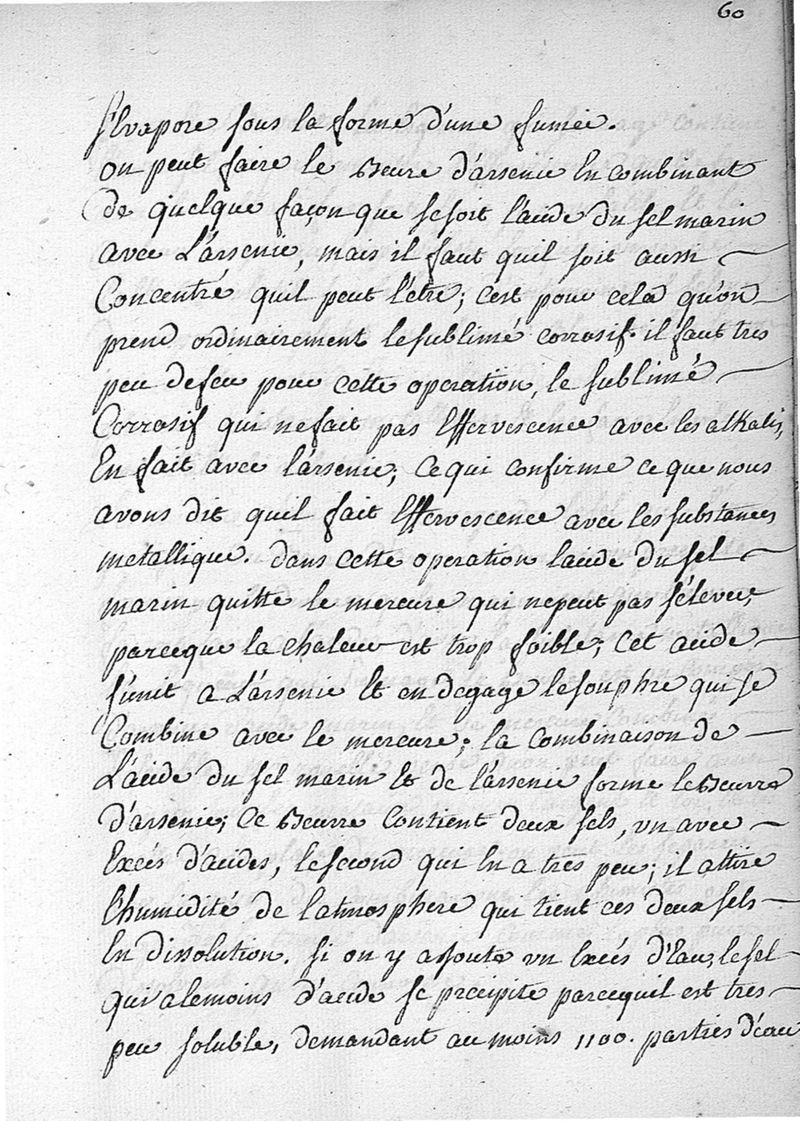 60
s'Evapore sous la forme d'une fumée.
on peut faire le Beure d'arsenic En combinant
de quelque façon que se soit l'acide du sel marin
avec L'arsenic, mais il faut quil soit aussi
Concentré quil peut l'être; c'est pour cela qu'on
prend ordinairement le sublimé corrosif. il faut tres
peu de feu pour cette operation, le sublimé
Corrosif qui ne fait pas Effervescence avec les alkalis,
En fait avec l'arsenic; ce qui confirme ce que nous
avons dit quil fait Effervescence avec les substances
metallique. dans cette operation l'acide du sel
marin quitte le mercure qui ne peut pas s'élever,
parceque la chaleur est trop foible; Cet acide
s'unit a L'arsenic Et en degage le souphre qui se
Combine avec le mercure; la combinaison de
L'acide du sel marin Et de l'arsenic forme le Beurre
d'arsenic; Ce Beurre Contient deux sels, un avec
Excés d'acides, le second qui En a tres peu; il attire
l'humidité de l'atmosphere qui tient ces deux sels
En dissolution. si on y ajoute un Excés d'Eau, le sel
qui a le moins d'acide se precipite parcequil est tres
peu soluble, demandant au moins 1100. parties d'eau